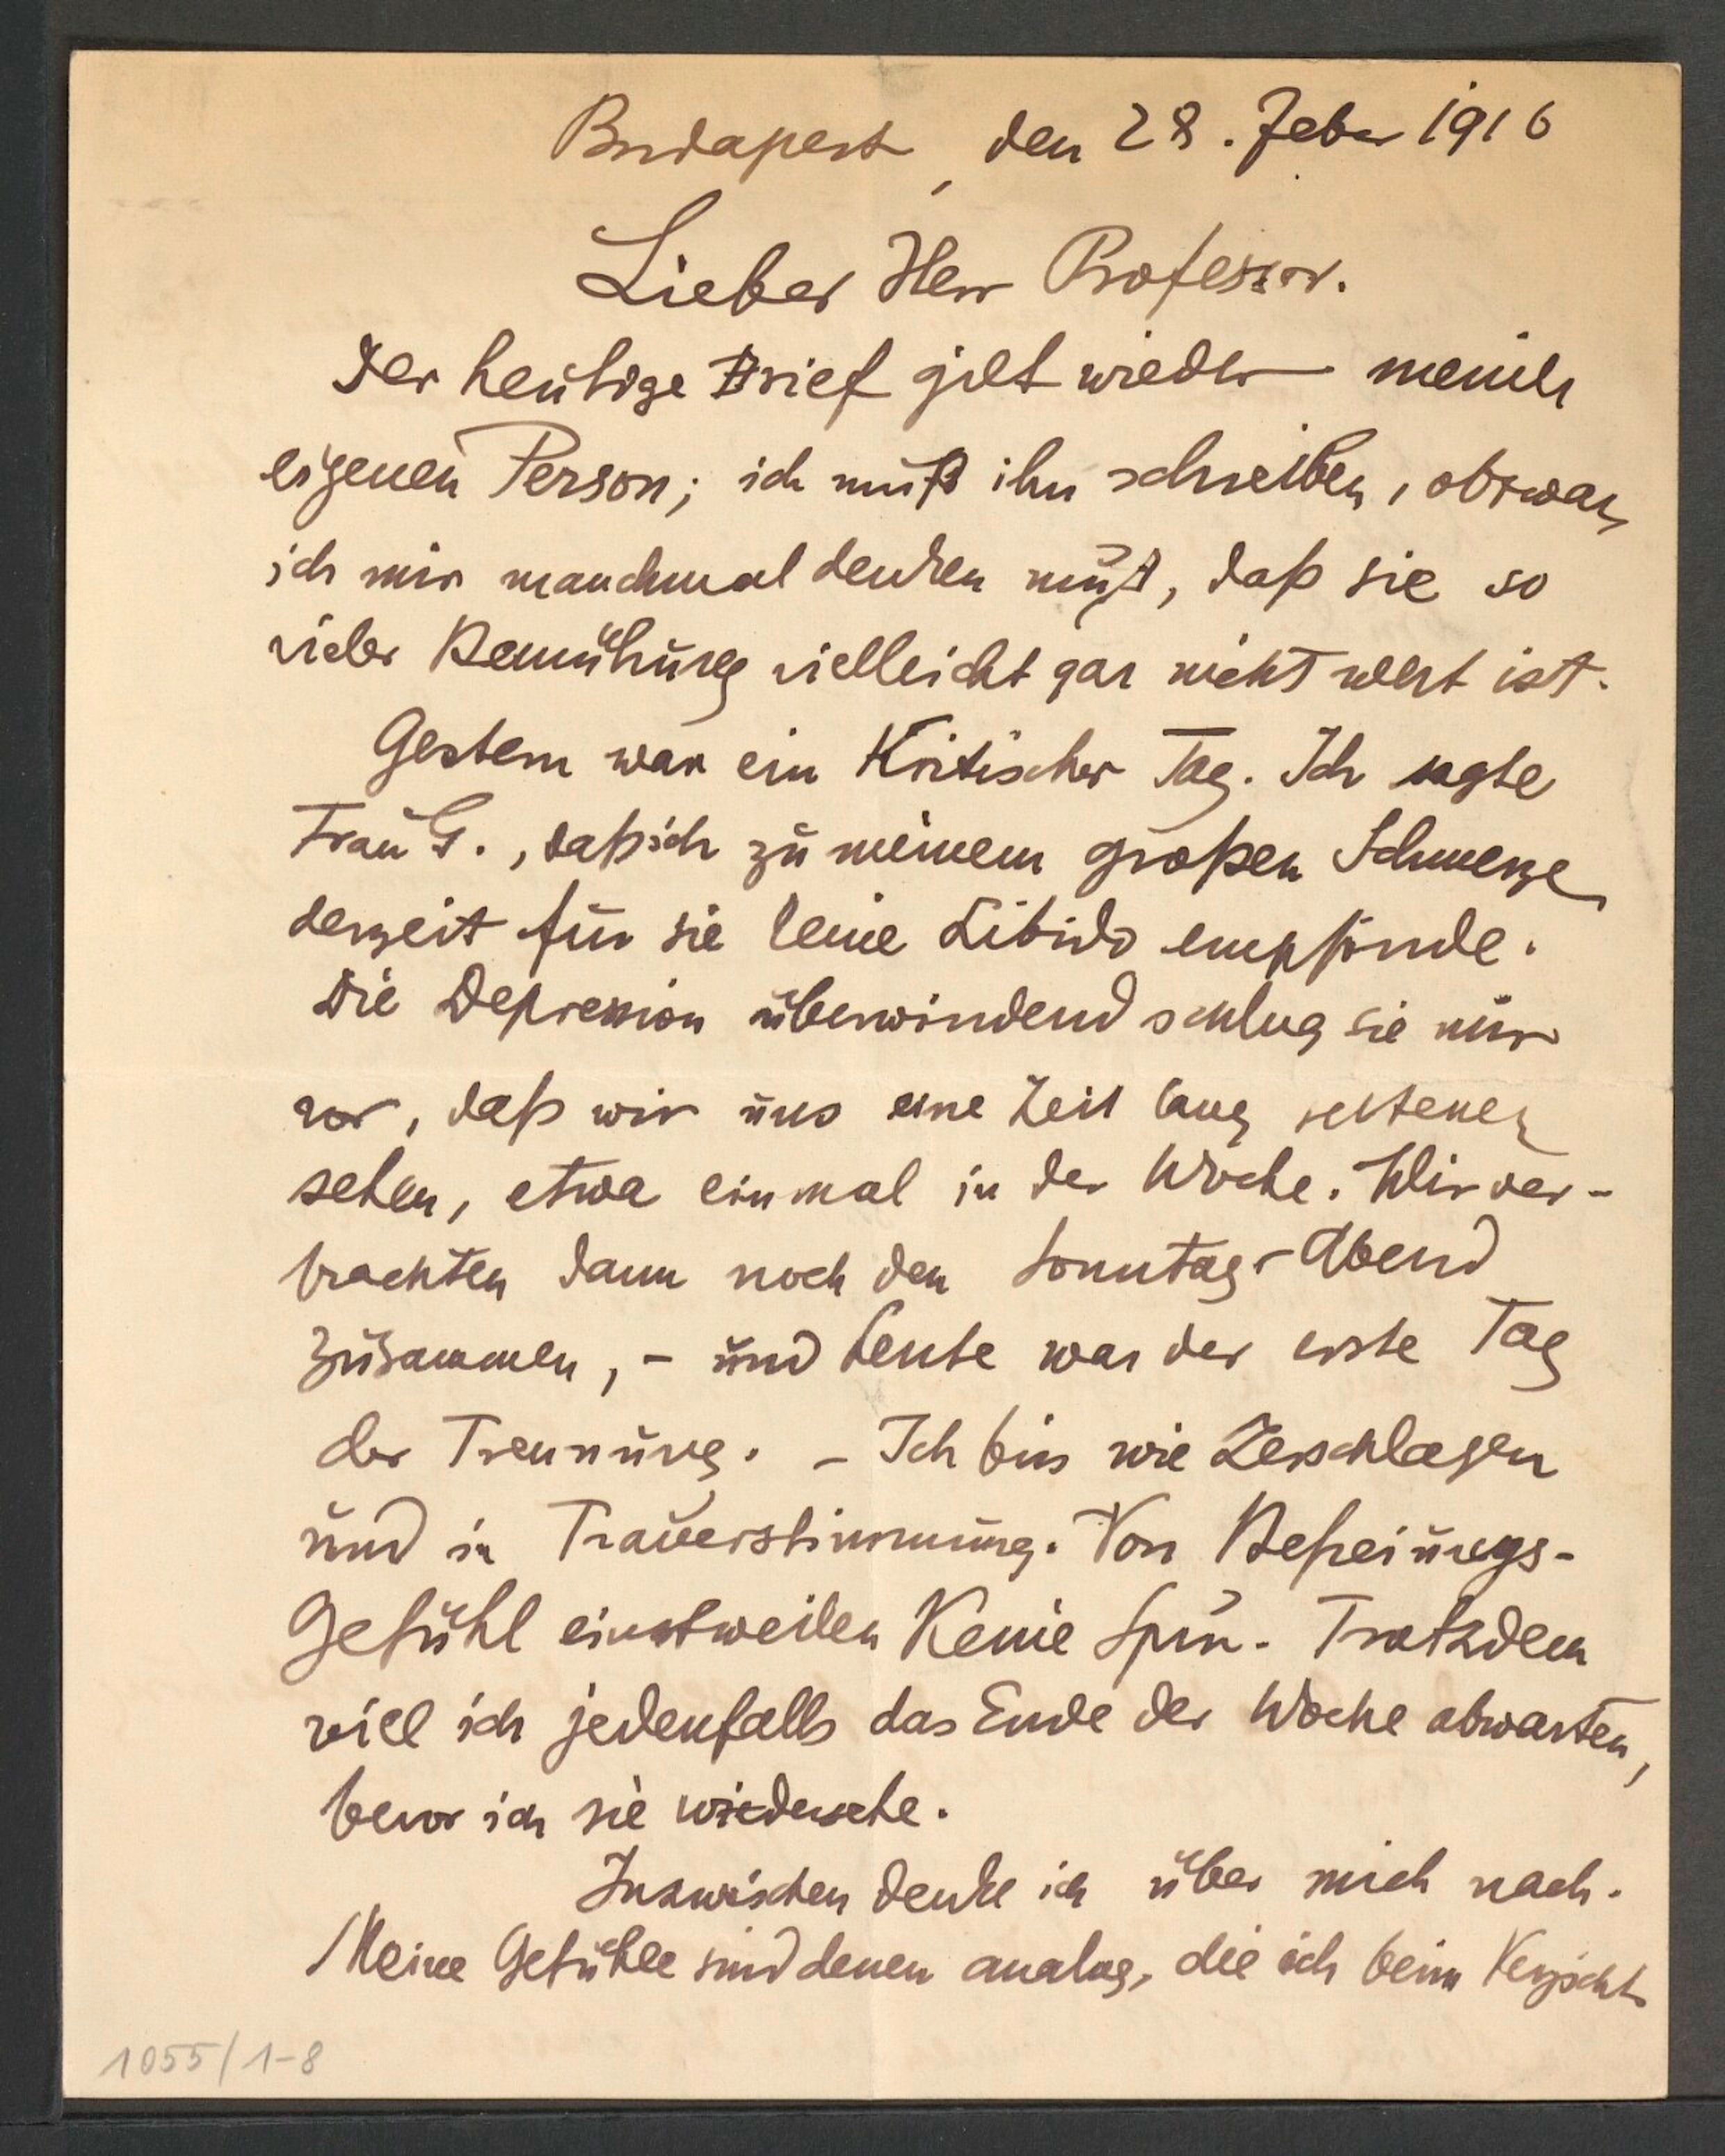 Budapest, den 28. Feber 1916
Lieber Herr Professor.
Der heutige Brief gilt wieder meiner
eigenen Person; ich muß ihn schreiben, obzwar
ich mir manchmal denken muß, daß sie so
vieler Bemühung vielleicht gar nicht wert ist.
Gestern war ein kritischer Tag. Ich sagte
Frau G., daß ich zu meinem großen Schmerze
derzeit für sie keine Libido empfinde.
Die Depression überwindend schlug sie mir
vor, daß wir uns eine Zeit lang seltener
sehen, etwa einmal in der Woche. Wir ver-
brachten dann noch den Sonntag-Abend
zusammen, - und heute war der erste Tag
der Trennung. - Ich bin wie zerschlagen
und in Trauerstimmung. Von Befreiungs-
Gefühl einstweilen keine Spur. Trotzdem
will ich jedenfalls das Ende der Woche abwarten,
bevor ich sie wiedersehe.
Inzwischen denke ich über mich nach.
Meine Gefühle sind denen analog, die ich beim Verzicht
1055/1-8